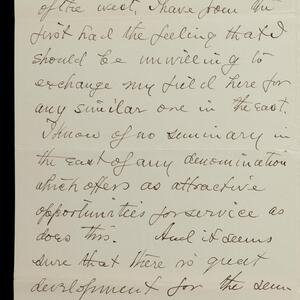 of the west. I have from the
first had the feeling that I
should be unwilling to
exchange my field here for
any similar one in the east.
I know of no seminary in
the east of any denomination
which offers as attractive
opportunities for service as
does this. And it seems
sure that there is great
development for the sem-